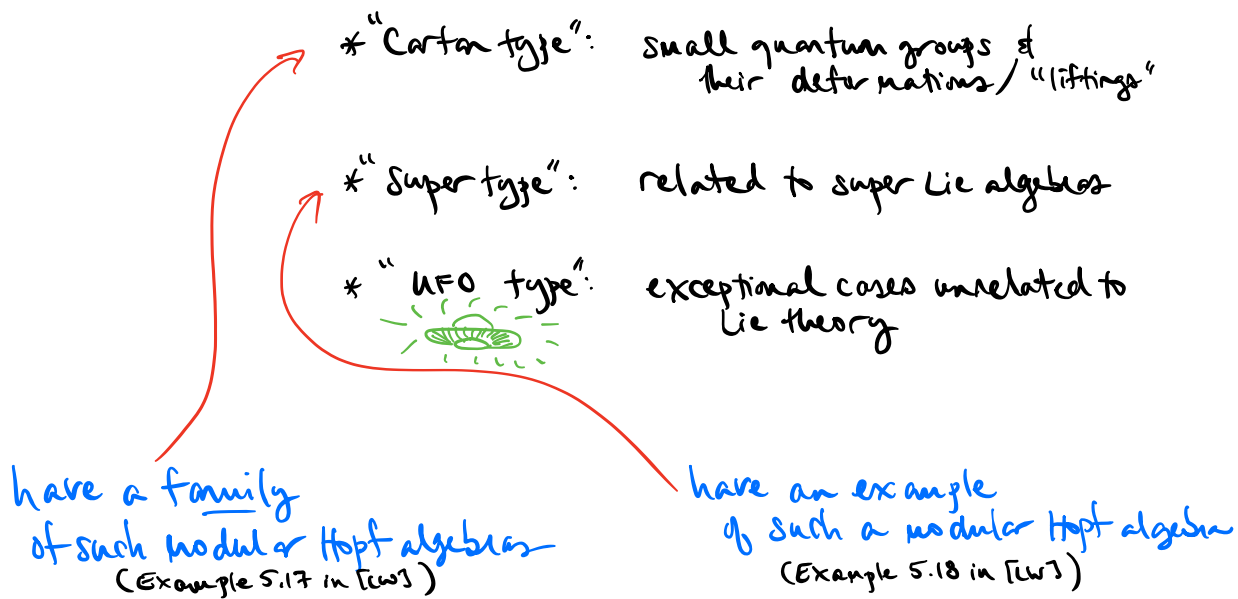 * "Cartan type": small quantum groups &
their deformations/"liftings"
* "Super type": related to super Lie algebras
* "UFO type": exceptional cases unrelated to
Lie theory
have a family
of such modular Hopf algebras
(Example 5.17 in [LW])
have an example
of such a modular Hopf algebra
(Example 5.18 in [LW])